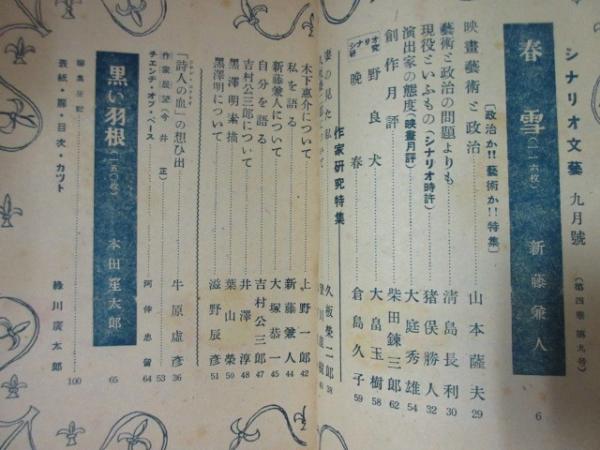 シナリオ文藝 九月號 (第四卷 第九号)
春雪 (一一六枚) 新藤兼人 6
〔政治か!! 藝術か!! 特集〕
映畫藝術と政治 山本薩夫 29
藝術と政治の問題よりも 淸島長利 30
現役といふもの (シナリオ時評) 猪俣勝人 32
演出家の態度 (映畫月評) 大庭秀雄 54
創作月評 柴田錬三郎 62
シナリオ研究 野良犬 大畠玉樹 58
晩春 倉島久子 59
作家研究特集
妻の見た私 久板榮二郎 38
木下惠介について 上野一郎 42
私を語る 新藤兼人 44
新藤兼人について 大塚恭一 45
自分を語る 吉村公三郎 47
吉村公三郎について 井澤淳 48
黒澤明素描 葉山榮 50
黒澤明について 滋野辰彦 51
「詩人の血」の想ひ出 牛原虛彦 36
作家展望 (今井正) 53
チエンヂ・オブ・ペース 阿仲忠留 64
黒い羽根 (一五〇枚) 本田笙太郎 65
編集後記 100
表紙・扉・目次・カツト 綠川廣太郎